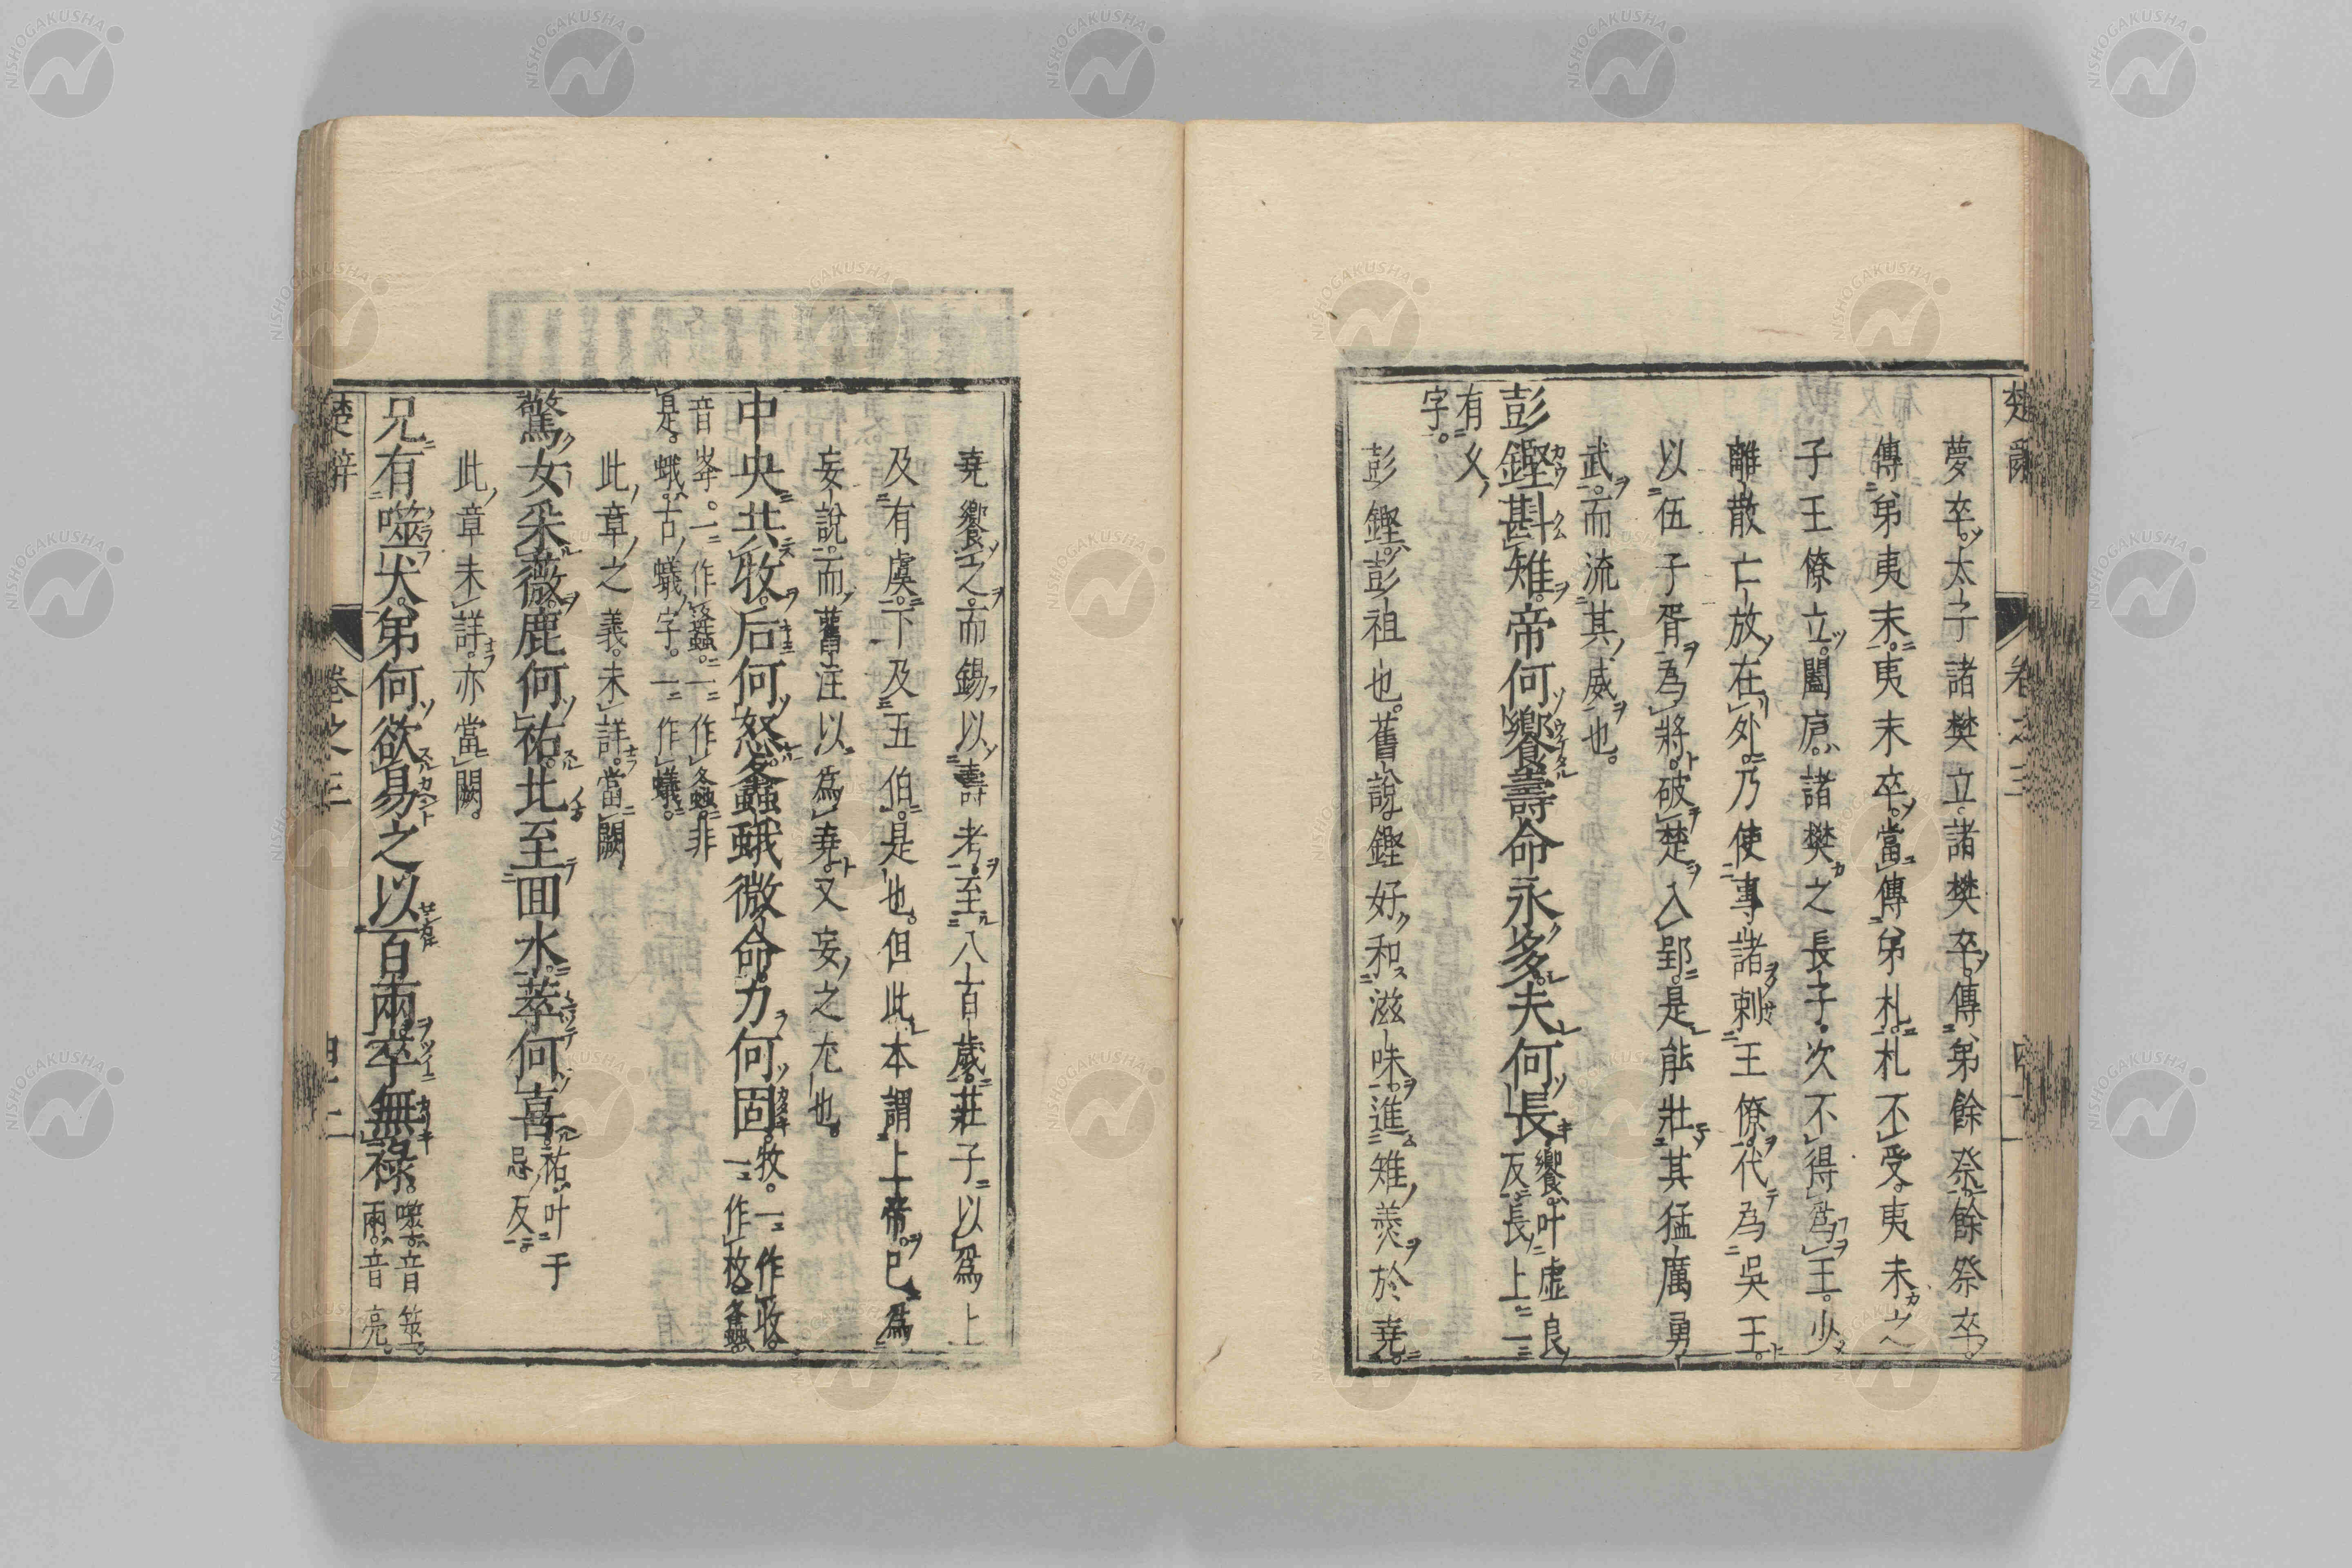 楚辭 卷之三 四十一
夢卒太子諸樊立諸樊卒傳弟餘祭餘祭卒
傳弟夷末夷末卒當傳弟札札不受夷未之
子王僚立闔廬諸樊之長子次不得為王少
離散亡放在外乃使專諸刺王僚代為吳王
以伍子胥為將破楚入郢是能壯其猛厲勇
武而流其威也
彭鏗斟雉帝何饗壽命永多夫何長饗叶虛良反長上一
有久字
彭鏗彭祖也舊說鏗好和滋味進雉羹於堯
堯饗之而錫以壽考至八百歲莊子以為上
及有虞下及五伯是也但此本謂上帝已為
妄說而舊注以為堯又妄之尤也
中央共牧后何怒蠭蛾微命力何固牧一作收一作枚蠭
音峯一作蠭一作螽非是蛾古蟻字一作蟻
此章之義未詳當闕
驚女采薇鹿何祐北至回水萃何喜祐叶于忌反
此章未詳亦當闕
兄有噬犬弟何欲易之以百兩卒無祿噬音筮兩音亮
楚辭 卷之三